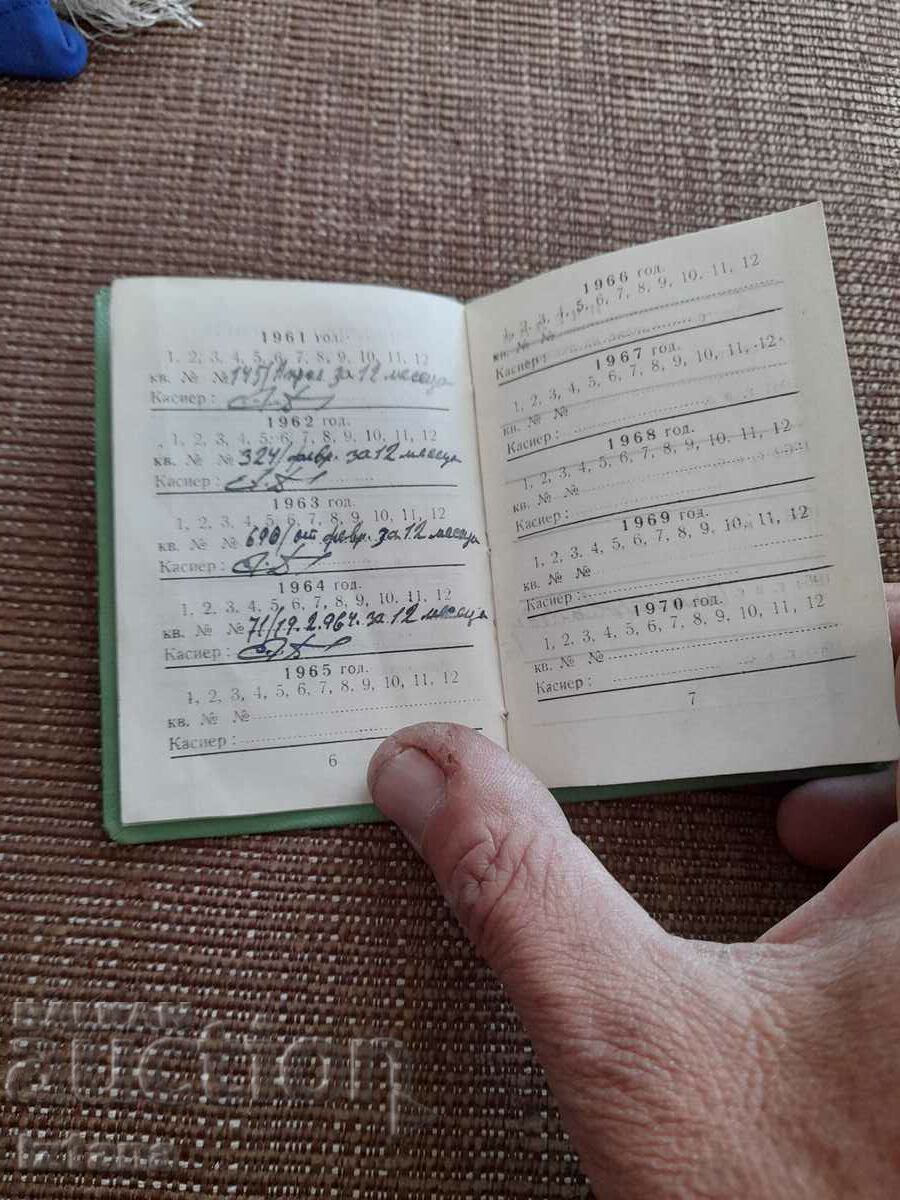 1961 год.
1, 2, 3, 4, 5, 6, 7, 8, 9, 10, 11, 12
кв. № № 145/ за 12 месеца
Касиер :
1962 год.
1, 2, 3, 4, 5, 6, 7, 8, 9, 10, 11, 12
кв. № № 324/февр. за 12 месеца
Касиер :
1963 год.
1, 2, 3, 4, 5, 6, 7, 8, 9, 10, 11, 12
кв. № № 690/от февр. за 12 месеца
Касиер :
1964 год.
1, 2, 3, 4, 5, 6, 7, 8, 9, 10, 11, 12
кв. № № 71/19.2.964. за 12 месеца
Касиер :
1965 год.
1, 2, 3, 4, 5, 6, 7, 8, 9, 10, 11, 12
кв. № №
Касиер :
6
1966 год.
1, 2, 3, 4, 5, 6, 7, 8, 9, 10, 11, 12
кв. № №
Касиер :
1967 год.
1, 2, 3, 4, 5, 6, 7, 8, 9, 10, 11, 12
кв. № №
Касиер :
1968 год.
1, 2, 3, 4, 5, 6, 7, 8, 9, 10, 11, 12
кв. № №
Касиер :
1969 год.
1, 2, 3, 4, 5, 6, 7, 8, 9, 10, 11, 12
кв. № №
Касиер :
1970 год.
1, 2, 3, 4, 5, 6, 7, 8, 9, 10, 11, 12
кв. № №
Касиер :
7
BALKAN
auction